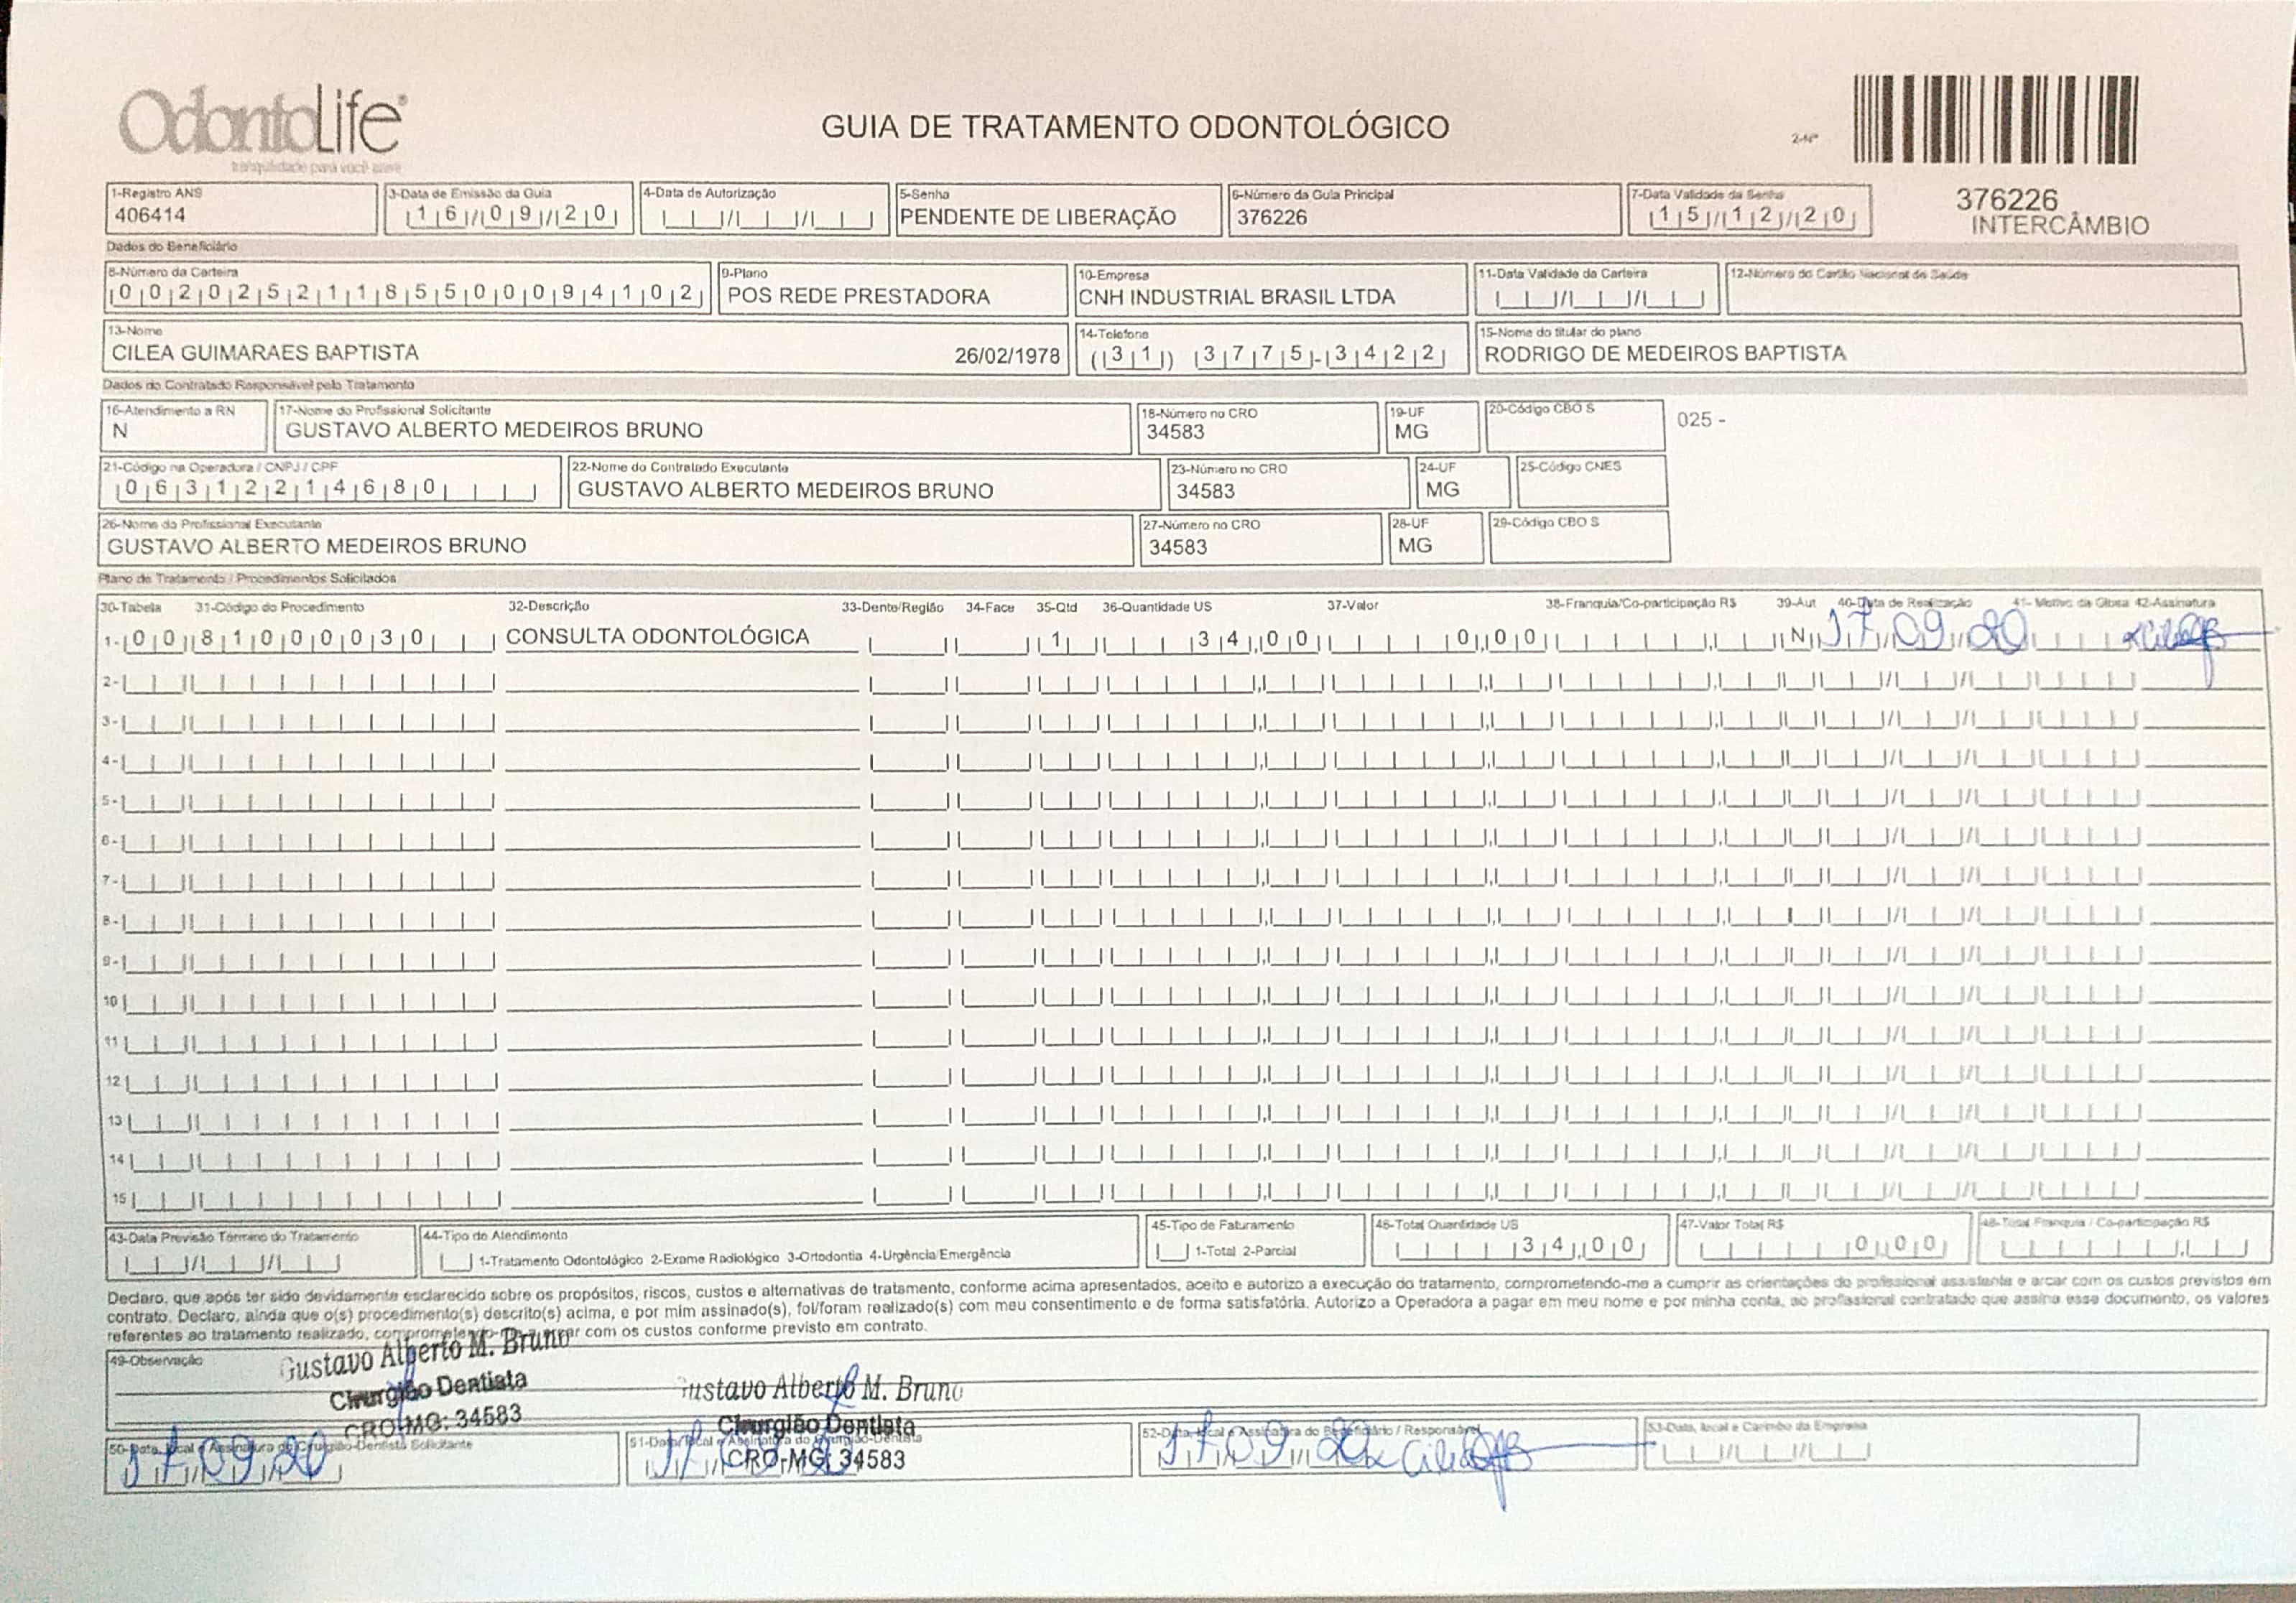 OdontoLife®
tranquilidade para você sorrir
GUIA DE TRATAMENTO ODONTOLÓGICO
2-Nº
376226
INTERCÂMBIO
1-Registro ANS
406414
3-Data de Emissão da Guia
16/09/20
4-Data de Autorização
5-Senha
PENDENTE DE LIBERAÇÃO
6-Número da Guia Principal
376226
7-Data Validade da Senha
15/12/20
Dados do Beneficiário
8-Número da Carteira
00202521185500094102
9-Plano
POS REDE PRESTADORA
10-Empresa
CNH INDUSTRIAL BRASIL LTDA
11-Data Validade da Carteira
12-Número do Cartão Nacional de Saúde
13-Nome
CILEA GUIMARAES BAPTISTA 26/02/1978
14-Telefone
(31) 3775-3422
15-Nome do titular do plano
RODRIGO DE MEDEIROS BAPTISTA
Dados do Contratado Responsável pelo Tratamento
16-Atendimento a RN
N
17-Nome do Profissional Solicitante
GUSTAVO ALBERTO MEDEIROS BRUNO
18-Número no CRO
34583
19-UF
MG
20-Código CBO S
025 -
21-Código na Operadora / CNPJ / CPF
06312214680
22-Nome do Contratado Executante
GUSTAVO ALBERTO MEDEIROS BRUNO
23-Número no CRO
34583
24-UF
MG
25-Código CNES
26-Nome do Profissional Executante
GUSTAVO ALBERTO MEDEIROS BRUNO
27-Número no CRO
34583
28-UF
MG
29-Código CBO S
Plano de Tratamento / Procedimentos Solicitados
30-Tabela 31-Código do Procedimento 32-Descrição 33-Dente/Região 34-Face 35-Qtd 36-Quantidade US 37-Valor 38-Franquia/Co-participação R$ 39-Aut 40-Data de Realização 41- Motivo da Glosa 42-Assinatura
1- 00 81000030 CONSULTA ODONTOLÓGICA 1 34,00 0,00 N 17 09 20
2-
3-
4-
5-
6-
7-
8-
9-
10
11
12
13
14
15
43-Data Previsão Término do Tratamento
44-Tipo de Atendimento
1-Tratamento Odontológico 2-Exame Radiológico 3-Ortodontia 4-Urgência/Emergência
45-Tipo de Faturamento
1-Total 2-Parcial
46-Total Quantidade US
34,00
47-Valor Total R$
0,00
48-Total Franquia / Co-participação R$
Declaro, que após ter sido devidamente esclarecido sobre os propósitos, riscos, custos e alternativas de tratamento, conforme acima apresentados, aceito e autorizo a execução do tratamento, comprometendo-me a cumprir as orientações do profissional assistente e arcar com os custos previstos em
contrato. Declaro, ainda que o(s) procedimento(s) descrito(s) acima, e por mim assinado(s), foi/foram realizado(s) com meu consentimento e de forma satisfatória. Autorizo a Operadora a pagar em meu nome e por minha conta, ao profissional contratado que assina esse documento, os valores
referentes ao tratamento realizado, comprometendo-me a arcar com os custos conforme previsto em contrato.
49-Observação
Gustavo Alberto M. Bruno
Cirurgião Dentista
CRO-MG: 34583
Gustavo Alberto M. Bruno
Cirurgião Dentista
CRO-MG: 34583
50-Data, local e Assinatura do Cirurgião-Dentista Solicitante
17 09 20
51-Data, local e Assinatura do Cirurgião-Dentista
52-Data, local e Assinatura do Beneficiário / Responsável
17 09 20
53-Data, local e Carimbo da Empresa